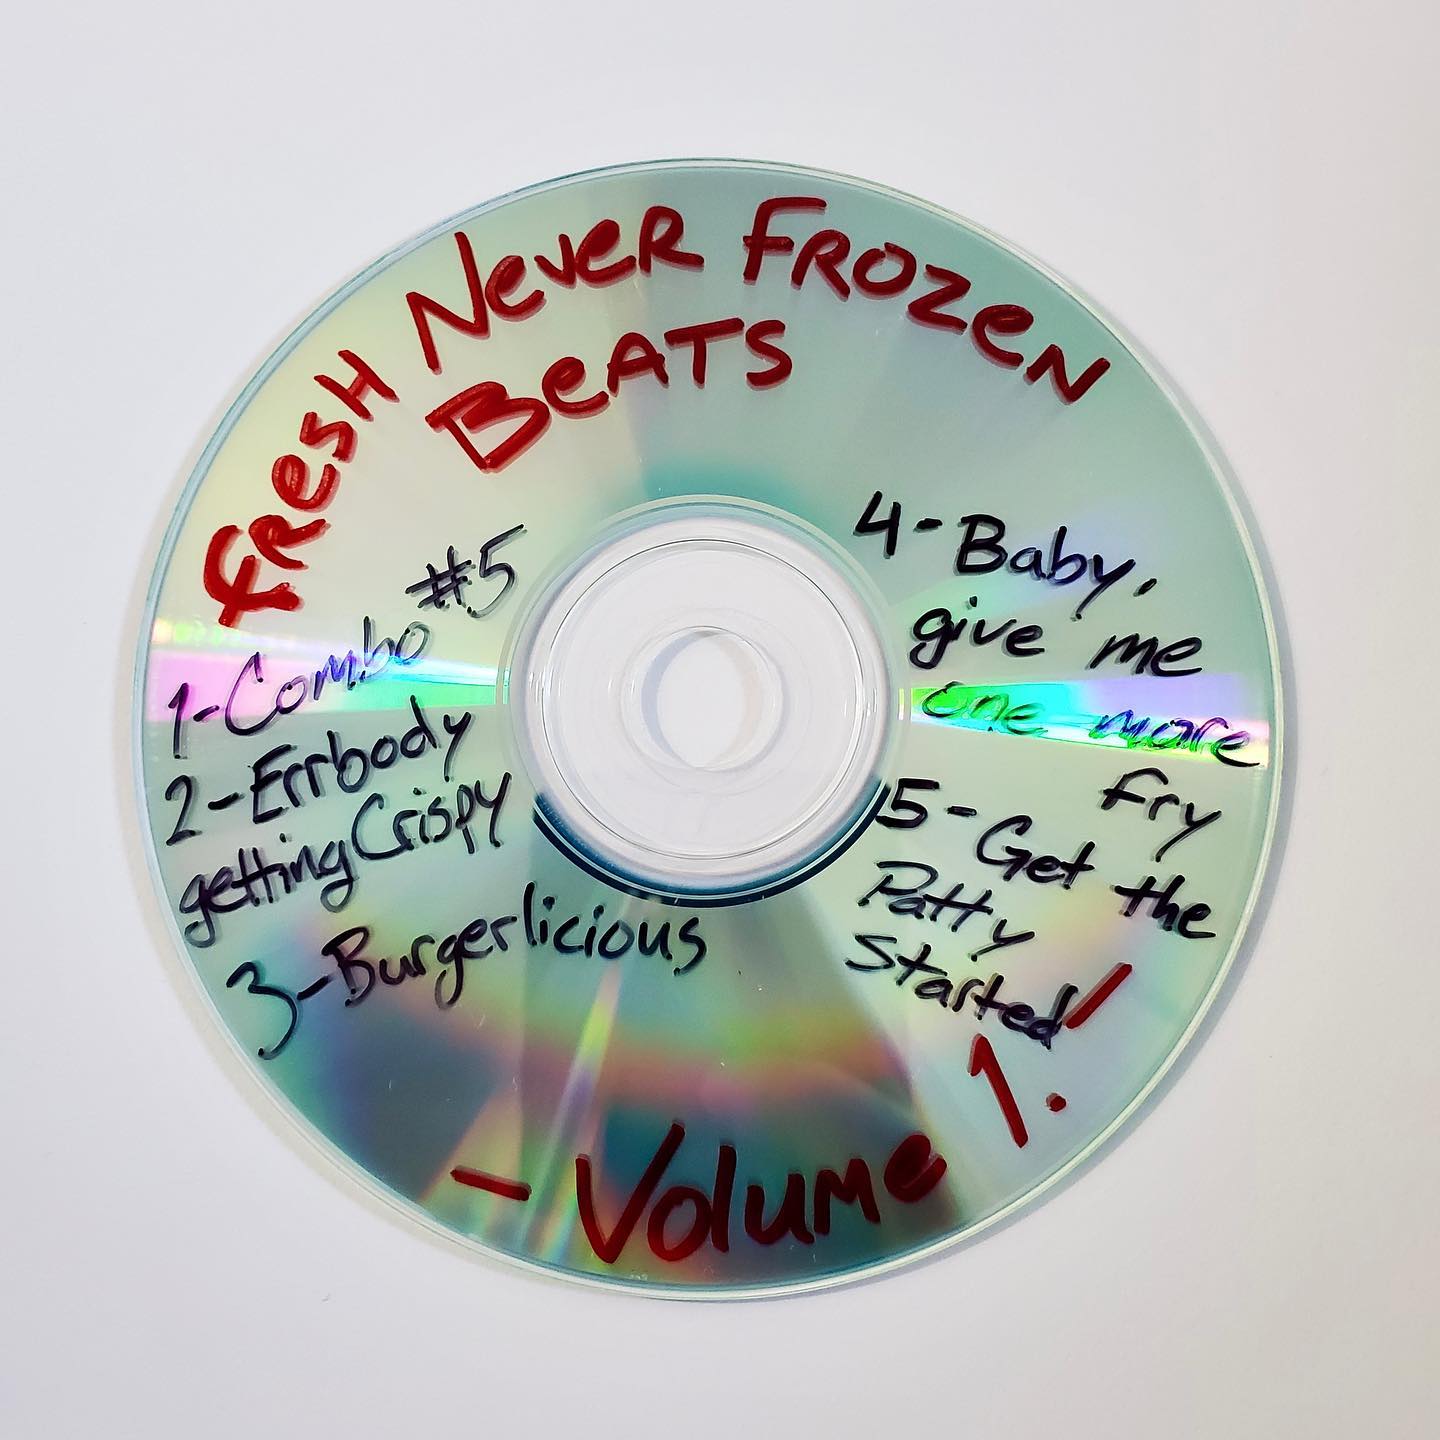 fResH NeveR FROZeN
BeATS
1-Combo #5
2-Errbody
getting Crispy
3-Burgerlicious
4-Baby,
give me
one more
fry
5-Get the
Patty
Started!
- Volume 1.